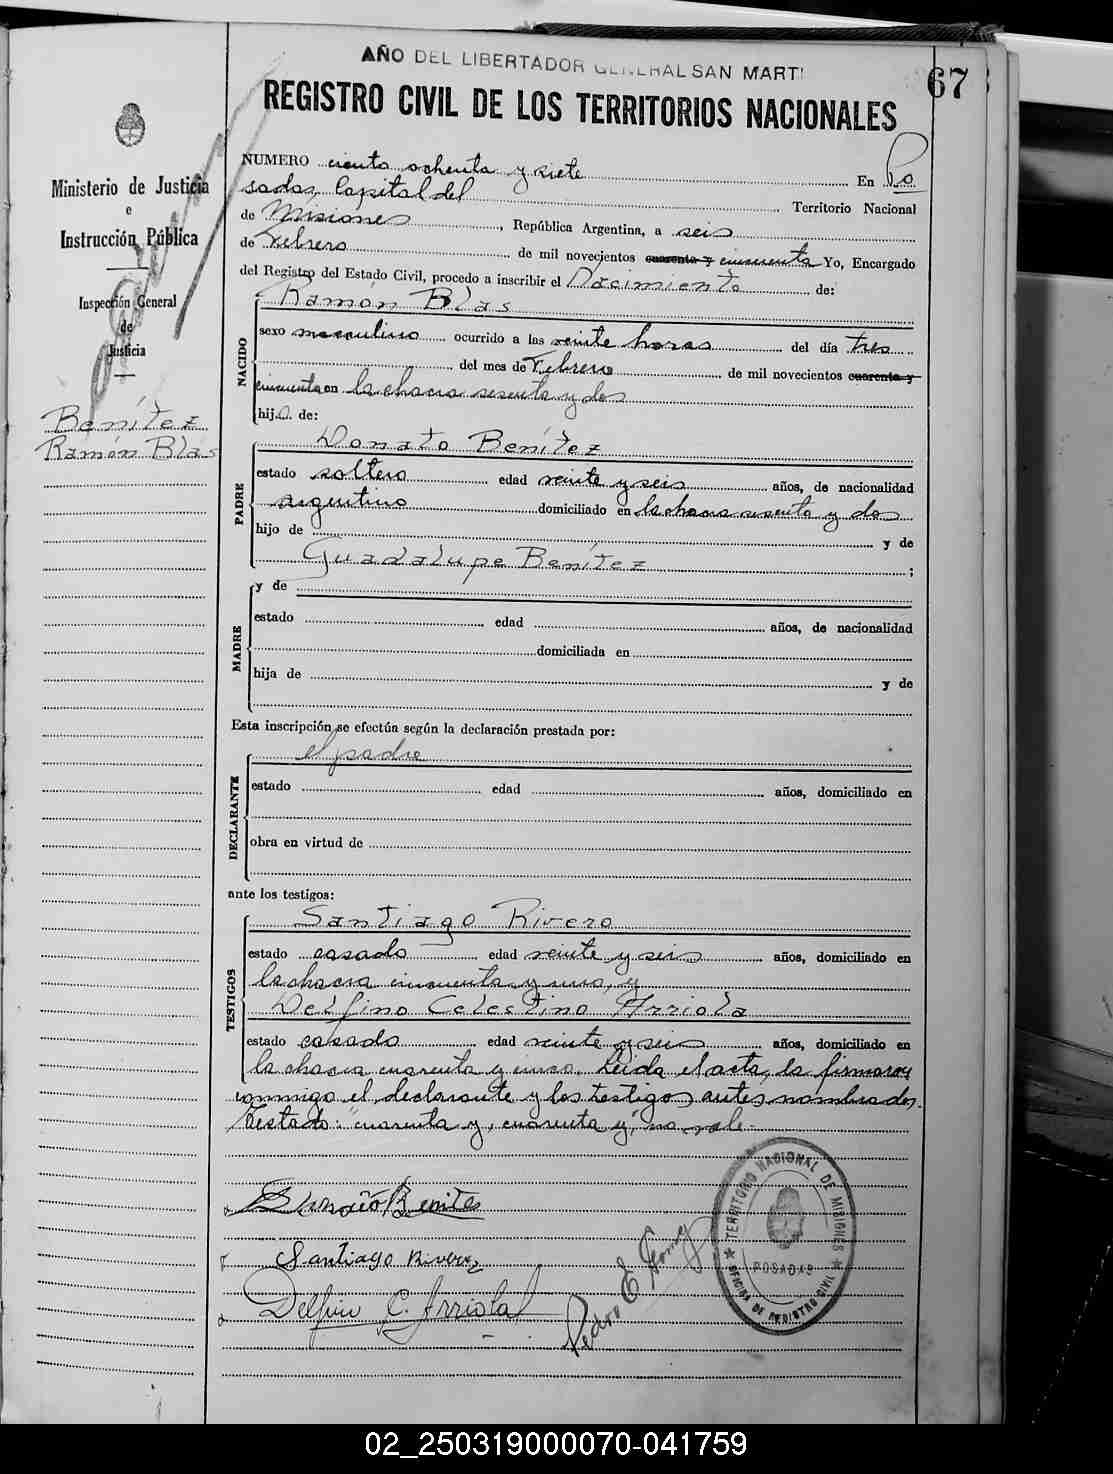 AÑO DEL LIBERTADOR GENERAL SAN MARTI
67
REGISTRO CIVIL DE LOS TERRITORIOS NACIONALES
Ministerio de Justicia
e
Instrucción Pública
Inspección General
de
Justicia
Benítez
Ramón Blas
NUMERO ciento ochenta y siete En Po
sadas, Capital del Territorio Nacional
de Misiones, República Argentina, a seis
de Febrero de mil novecientos cuarenta y cincuenta Yo, Encargado
del Registro del Estado Civil, procedo a inscribir el Nacimiento de:
NACIDO
Ramón Blas
sexo masculino ocurrido a las veinte horas del día tres
del mes de Febrero de mil novecientos cuarenta y
cincuenta en la chacra sesenta y dos
hijo de:
PADRE
Donato Benítez
estado soltero edad veinte y seis años, de nacionalidad
argentino domiciliado en la chacra sesenta y dos
hijo de y de
Guadalupe Benítez ;
MADRE
y de
estado edad años, de nacionalidad
domiciliada en
hija de y de
Esta inscripción se efectúa según la declaración prestada por:
DECLARANTE
el padre
estado edad años, domiciliado en
obra en virtud de
ante los testigos:
TESTIGOS
Santiago Rivero
estado casado edad veinte y seis años, domiciliado en
la chacra cincuenta y uno, y
Delfino Celestino Arriola
estado casado edad veinte y seis años, domiciliado en
la chacra cuarenta y cinco. Leída el acta, la firmaron
conmigo el declarante y los testigos antes nombrados.
Testado: "cuarenta y, cuarenta y", no vale.
Donato Benites
Santiago Rivero
Delfin C. Arriola
Pedro E. Gomez
TERRITORIO NACIONAL DE MISIONES
POSADAS
OFICINA DE REGISTRO CIVIL
02_250319000070-041759